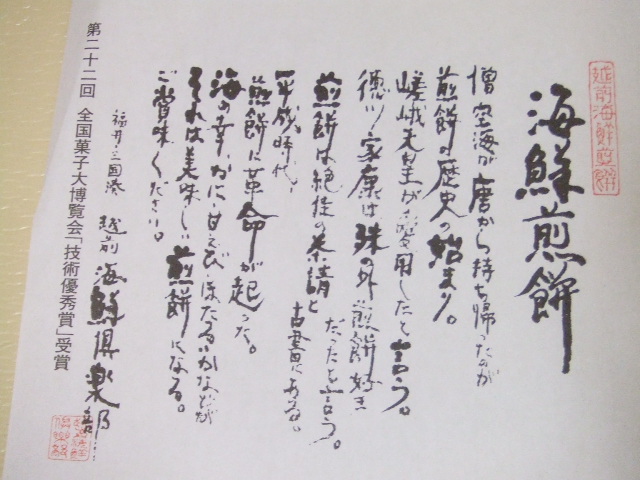 越前海鮮煎餅
海鮮煎餅
僧空海が唐から持ち帰ったのが
煎餅の歴史の始まり。
嵯峨天皇が愛用したと言う。
徳川家康は殊の外煎餅好き
だったと言う。
煎餅は絶佳の茶請と
古書にある。
平成時代、
煎餅に革命が起った。
海の幸、かに甘えびほたるいかなどが
それは美味しい煎餅になる。
ご賞味ください。
福井三国湊 越前海鮮倶楽部
第二十二回 全国菓子大博覧会「技術優秀賞」受賞